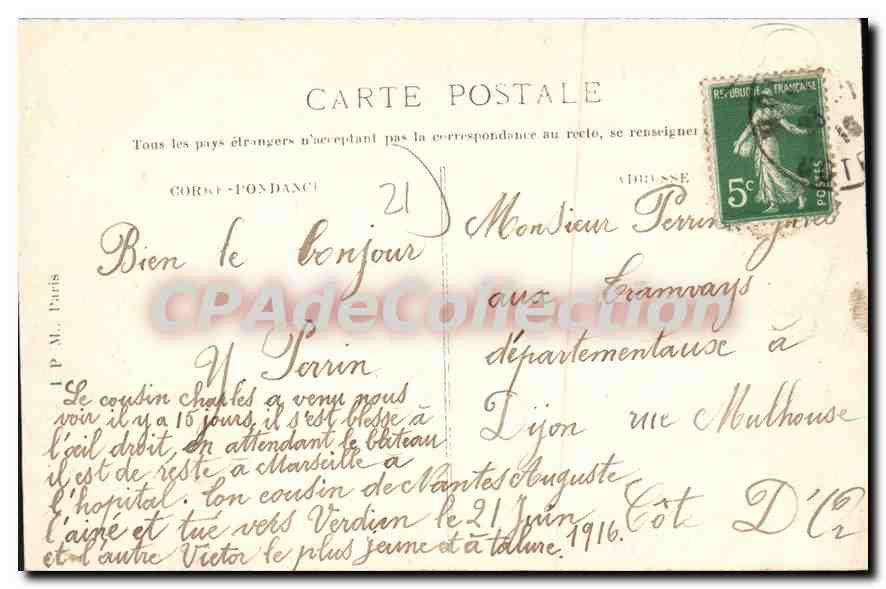 CARTE POSTALE
Tous les pays étrangers n'acceptant pas la correspondance au recto, se renseigner
CORRESPONDANCE
ADRESSE
21
REPUBLIQUE FRANÇAISE
5c
POSTES
I P M, Paris
Bien le bonjour
Y Perrin
Le cousin charles a venu nous
voir il y a 15 jours, il s'est blessé à
l'œil droit, en attendant le bateau
il est de reste à Marseille à
l'hopital. Ton cousin de Nantes Auguste
l'ainé et tué vers Verdun le 21 Juin 1916.
et l'autre Victor le plus jeune et à
Monsieur Perrin
aux Tramvays
départementause à
Dijon rue Mulhouse
Côte D'Or
CPAdeCollection